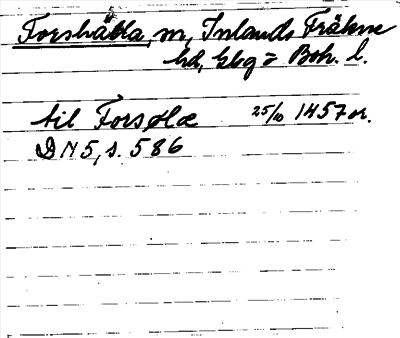 Forshälla, m, Inlands Fräkne
hd, Gbg o Boh. l.
til Forsølæ 25/10 1457 or.
DN 5, s. 586